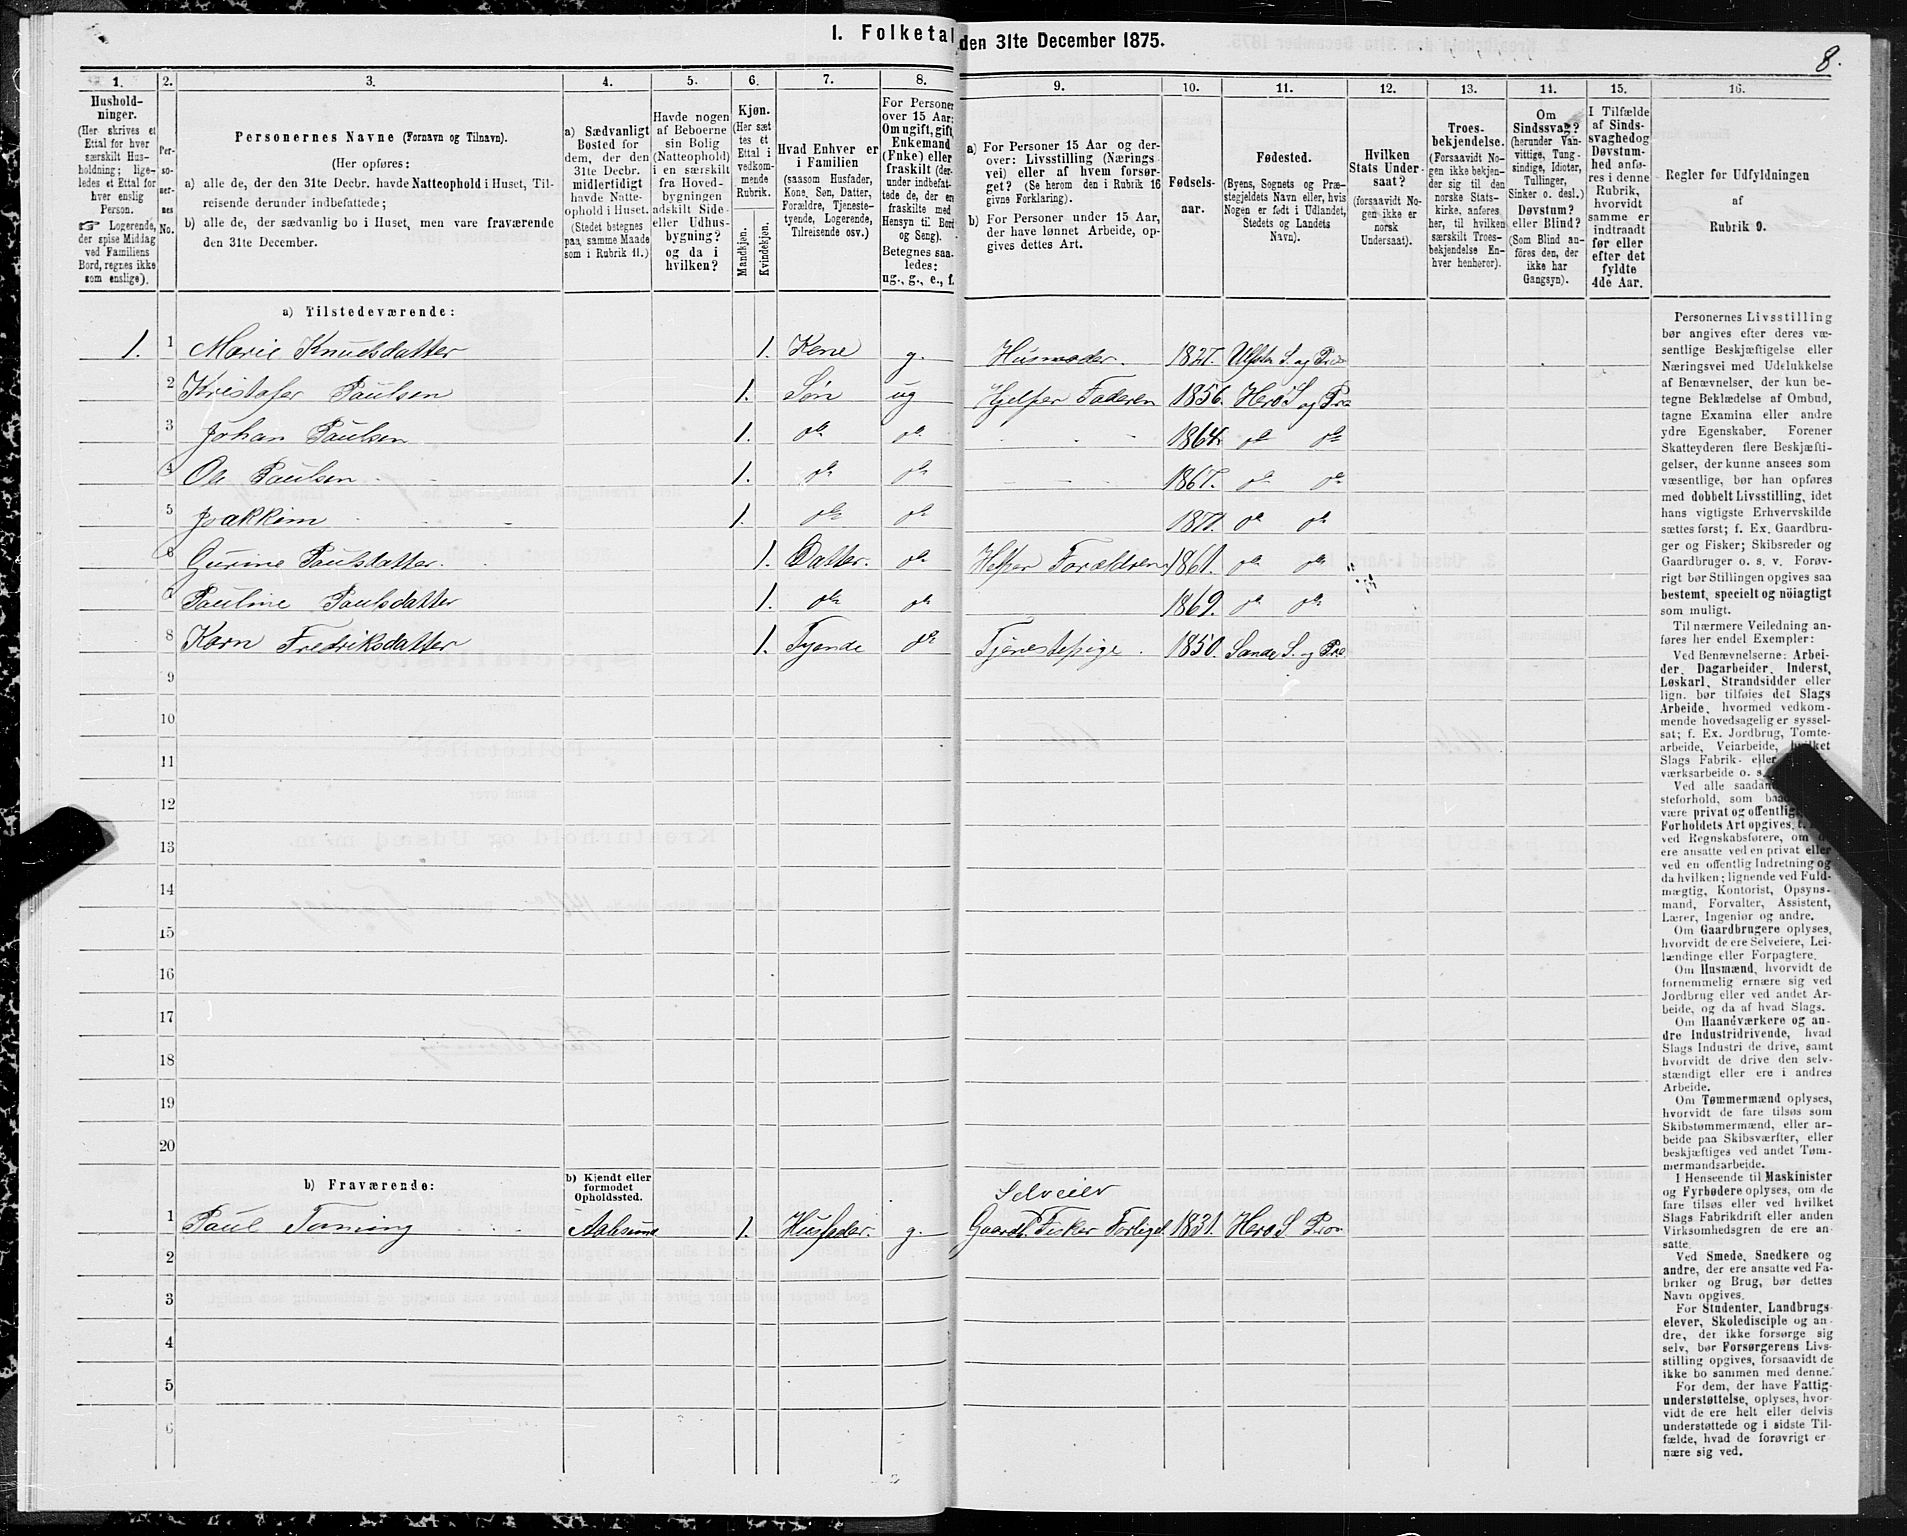 I. Folketal den 31te December 1875.
8.
1. 2. 3. 4. 5. 6. 7. 8. 9. 10. 11. 12. 13. 14. 15. 16.
Hushold-
ninger.
(Her skrives et
Ettal for hver
særskilt Hus-
holdning; lige-
ledes et Ettal for
hver enslig
Person.
☞ Logerende,
der spise Middag
ved Familiens
Bord, regnes ikke
som enslige).
Per-
so-
ner-
nes
No.
Personernes Navne (Fornavn og Tilnavn).
(Her opføres:
a) alle de, der den 31te Decbr. havde Natteophold i Huset, Til-
reisende derunder indbefattede;
b) alle de, der sædvanlig bo i Huset, men vare fraværende
den 31te December.
a) Sædvanligt
Bosted for
dem, der den
31te Decbr.
midlertidigt
havde Natte-
ophold i Huset.
(Stedet betegnes
paa, samme Maade
som i Rubrik 11.)
Havde nogen
af Beboerne
sin Bolig
(Natteophold)
i en særskilt
fra Hoved-
bygningen
adskilt Side-
eller Udhus-
bygning?
og da i
hvilken?
Kjøn.
(Her sæt
tes et
Ettal i
vedkom-
mende
Rubrik.
Mandkjøn.
Kvindekjøn.
Hvad Enhver er
i Familien
(saasom Husfader,
Kone, Søn, Datter,
Forældre, Tjeneste-
tyende, Logerende,
Tilreisende osv.)
For Personer
over 15 Aar:
Om ugift, gift,
Enkemand
(Enke) eller
fraskilt (der-
under indbefat-
tede de, der ere
fraskilte med
Hensyn til Bord
og Seng).
Betegnes saa-
ledes:
ug., g., e., f.
a) For Personer 15 Aar og der-
over: Livsstilling (Nærings-
vei) eller af hvem forsør-
get? (Se herom den i Rubrik 16
givne Forklaring).
b) For Personer under 15 Aar,
der have lønnet Arbeide, op-
gives dettes Art.
Fødsels-
aar.
Fødested.
(Byens, Sognets og Præ-
stegjeldets Navn eller, hvis
Nogen er født i Udlandet,
Stedets og Landets
Navn).
Hvilken
Stats Under-
saat?
(forsaavidt No-
gen ikke er
norsk
Undersaat).
Troes-
bekjendelse.
(Forsaavidt No-
gen ikke bekjen-
der sig til den
norske Stats-
kirke, anføres
her, til hvilken
særskilt Troes-
bekjendelse En-
hver henhører).
Om
Sindssvag?
(herunder Van-
vittige, Tung-
sindige, Idioter,
Tullinger,
Sinker o. desl.)
Døvstum?
eller Blind?
(Som Blind an-
føres den, der
ikke har
Gangsyn).
I Tilfælde
af Sinds-
svaghed og
Døvstum-
hed anfø-
res i denne
Rubrik,
hvorvidt
samme er
indtraadt
før eller
efter det
fyldte
4de Aar.
Regler for Udfyldningen
af
Rubrik 9.
a) Tilstedeværende:
1. 1 Marie Knudsdatter 1. Kone g. Husmoder. 1827. Ulfsten S. og Præ
2 Kristofer Paulsen 1. Søn ug Hjelper Faderen 1856. Herø S og Præ
3 Johan Paulsen 1. do do 1864. do do
4 Ole Paulsen 1. do do 1867. do do
5 Joakkim 1. do do do do
6 Gurine Paulsdatter. 1. Datter. do Helper Forældren. 1861. do do
7 Pauline Paulsdatter 1. do do 1869. do do
8 Karn Fredriksdatter 1. Tyende do Tjenestepige. 1850. Sande S. og Præ
9
10
11
12
13
14
15
16
17
18
19
20
b) Fraværende:
b) Kjendt eller
formodet
Opholdssted.
Selveier
1 Paul Tarning Aalesund 1. Husfader. g. Gaardb. Fisker 1831. Herø S. Præ
2
3
4
5
6
Personernes Livsstilling
bør angives efter deres væ-
sentlige Beskjæftigelse eller
Næringsvei med Udelukkelse
af Benævnelser, der kun be-
tegne Beklædelse af Ombud,
tagne Examina eller andre
ydre Egenskaber. Forener
Skatteyderen flere Beskjæfti-
gelser, der kunne ansees som
væsentlige, bør han opføres
med dobbelt Livsstilling, idet
hans vigtigste Erhvervskilde
sættes først; f. Ex. Gaardbru-
ger og Fisker; Skibsreder og
Gaardbruger o. s. v. Forøv-
rigt bør Stillingen opgives saa
bestemt, specielt og nöiagtigt
som muligt.
Til nærmere Veiledning an-
føres her endel Exempler:
Ved Benævnelserne: Arbei-
der, Dagarbeider, Inderst,
Løskarl, Strandsidder eller
lign. bør tilføies det Slags
Arbeide, hvormed vedkom-
mende hovedsagelig er syssel-
sat; f. Ex. Jordbrug, Tomte-
arbeide, Veiarbeide, hvilket
Slags Fabrik- eller
værksarbeide o. s.
Ved alle saadan
steforhold, som baa
være privat og offentlig,
Forholdets Art opgives, t.
ved Regnskabsførere, om
ere ansatte ved en privat eller
ved en offentlig Indretning og
da hvilken; lignende ved Fuld-
mægtig, Kontorist, Opsyns-
mand, Forvalter, Assistent,
Lærer, Ingeniør og andre.
Om Gaardbrugere oplyses,
hvorvidt de ere Selveiere, Lei-
lændinge eller Forpagtere.
Om Husmænd, hvorvidt de
fornemmelig ernære sig ved
Jordbrug eller ved andet Ar-
beide, og da af hvad Slags.
Om Haandværkere og an-
dre Industridrivende, hvad
Slags Industri de drive, samt
hvorvidt de drive den selv-
stændigt eller ere i andres
Arbeide.
Om Tømmermænd oplyses,
hvorvidt de fare tilsøs som
Skibstømmermænd, eller ar-
beide paa Skibsværfter, eller
beskjæftiges ved andet Tøm-
mermandsarbeide.
I Henseende til Maskinister
og Fyrbødere oplyses, om de
fare tilsøs eller ved hvilket
Slags Fabrikdrift eller anden
Virksomhedsgren de ere an-
satte.
Ved Smede, Snedkere og
andre, der ere ansatte ved Fa-
briker og Brug, bør dettes
Navn opgives.
For Studenter, Landbrugs-
elever, Skoledisciple og an-
dre, der ikke forsørge sig
selv, bør Forsørgerens Livs-
stilling opgives, forsaavidt de
ikke bo sammen med denne.
For dem, der have Fattig-
understøttelse, oplyses, hvor-
vidt de ere helt eller delvis
understøttede og i sidste Til-
fælde, hvad de forøvrigt er
nære sig ved.